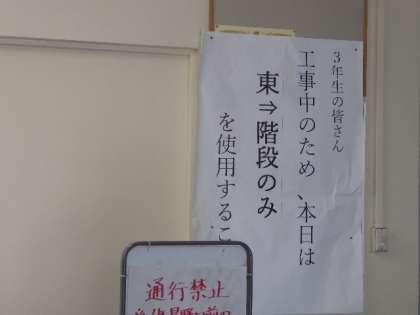 3年生の皆さん
工事中のため、本日は
東⇒階段のみ
を使用するこ
通行禁止